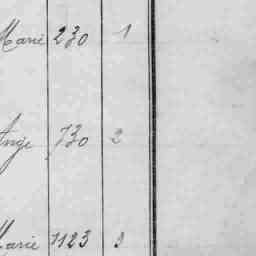 Marie 230 1
Ange 730 2
Marie 1123 3